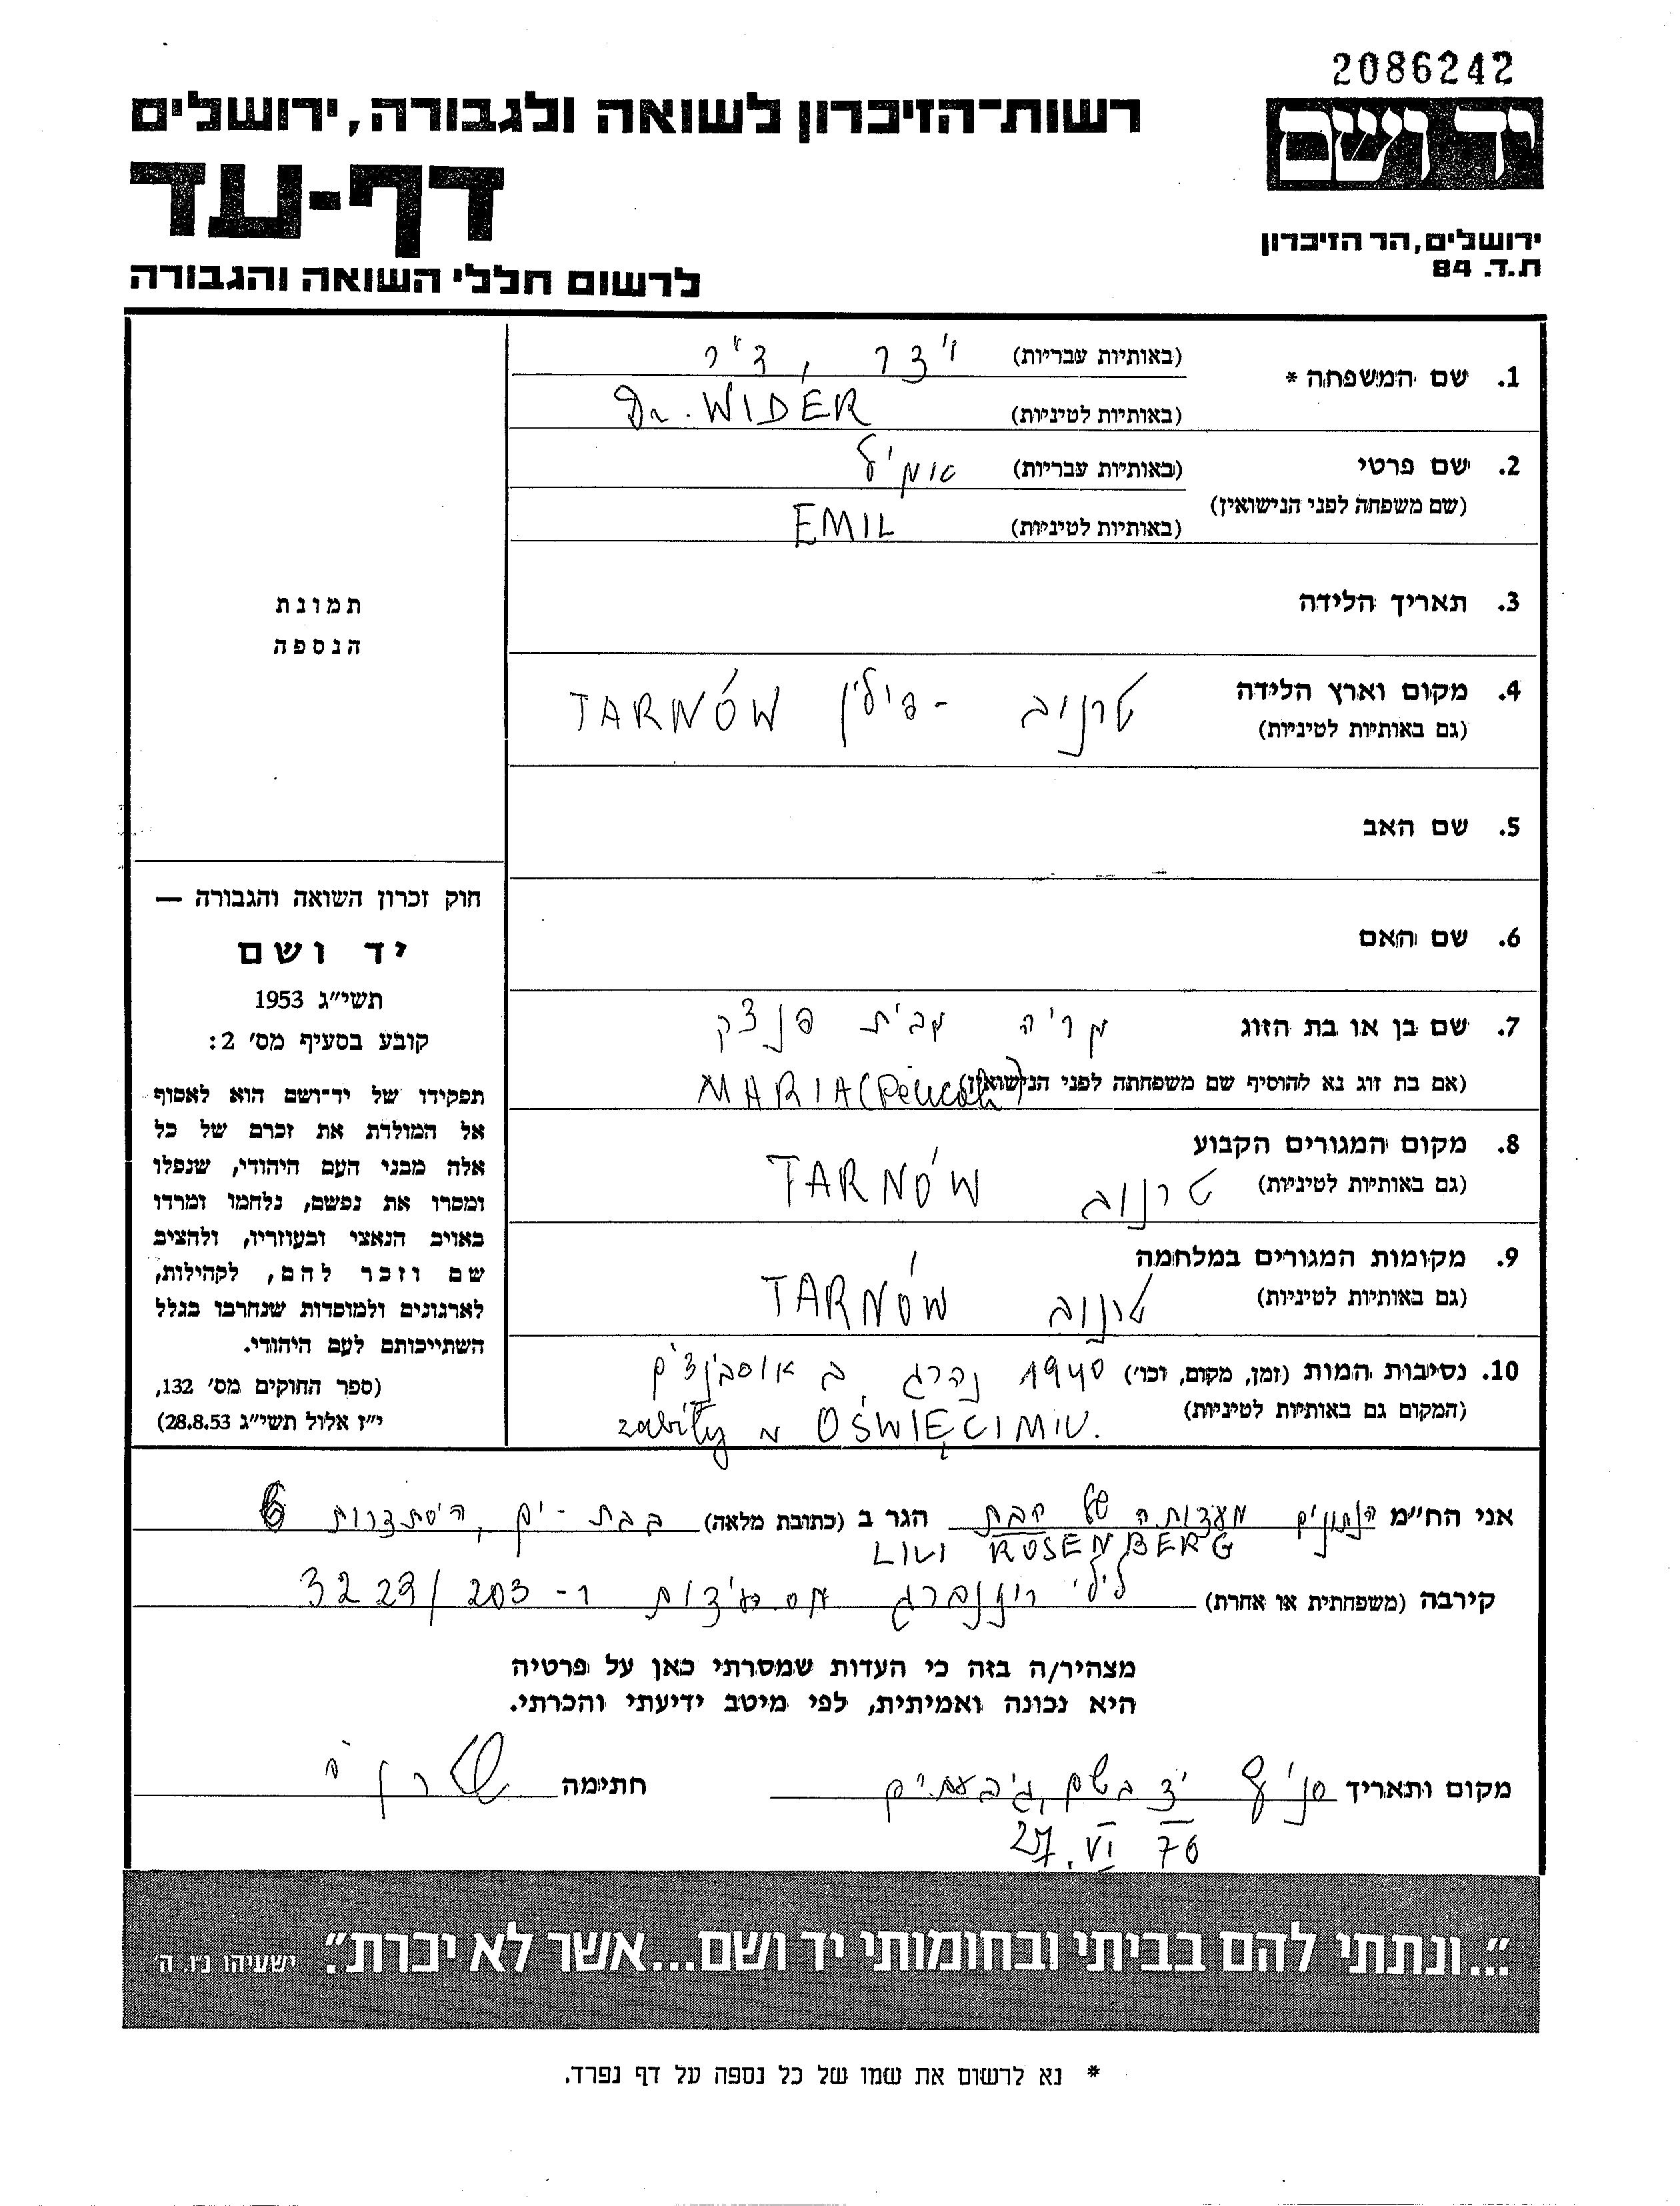 2086242
יד ושם
רשות־הזיכרון לשואה ולגבורה, ירושלים
דף-עד
לרשום חללי השואה והגבורה
ירושלים, הר הזיכרון
ת.ד. 84
1. שם המשפחה * (באותיות עבריות) וידר, ד"ר
(באותיות לטיניות) Dr. WIDER
2. שם פרטי (באותיות עבריות) אמיל
(שם משפחה לפני הנישואין)
(באותיות לטיניות) EMIL
3. תאריך הלידה
4. מקום וארץ הלידה טרנוב - פולין TARNÓW
(גם באותיות לטיניות)
5. שם האב
6. שם האם
7. שם בן או בת הזוג מריה מבית פנצק
(אם בת זוג נא להוסיף שם משפחתה לפני הנישואין) MARIA
8. מקום המגורים הקבוע
(גם באותיות לטיניות) טרנוב TARNÓW
9. מקומות המגורים במלחמה
(גם באותיות לטיניות) טרנוב TARNÓW
10. נסיבות המות (זמן, מקום, וכו') 1940 נהרג ב
(המקום גם באותיות לטיניות) zabity w OŚWIĘCIMIU.
תמונת
הנספה
חוק זכרון השואה והגבורה —
יד ושם
תשי"ג 1953
קובע בסעיף מס' 2:
תפקידו של יד־ושם הוא לאסוף
אל המולדת את זכרם של כל
אלה מבני העם היהודי, שנפלו
ומסרו את נפשם, נלחמו ומרדו
באויב הנאצי ובעוזריו, ולהציב
שם וזכר להם, לקהילות,
לארגונים ולמוסדות שנחרבו בגלל
השתייכותם לעם היהודי.
(ספר החוקים מס' 132,
י"ז אלול תשי"ג 28.8.53)
אני הח"מ הנתונים מעדותה של הגב' הגר ב (כתובת מלאה) בבת-ים, הסתדרות 6
LILI ROSENBERG
קירבה (משפחתית או אחרת) לילי רוזנברג מס עדות ר-3223/203
מצהיר/ה בזה כי העדות שמסרתי כאן על פרטיה
היא נכונה ואמיתית, לפי מיטב ידיעתי והכרתי.
מקום ותאריך סניף יד ושם, גבעתיים חתימה
27. VI 70
"...ונתתי להם בביתי ובחומותי יד ושם...אשר לא יכרת". ישעיהו נ"ו, ה'
* נא לרשום את שמו של כל נספה על דף נפרד.